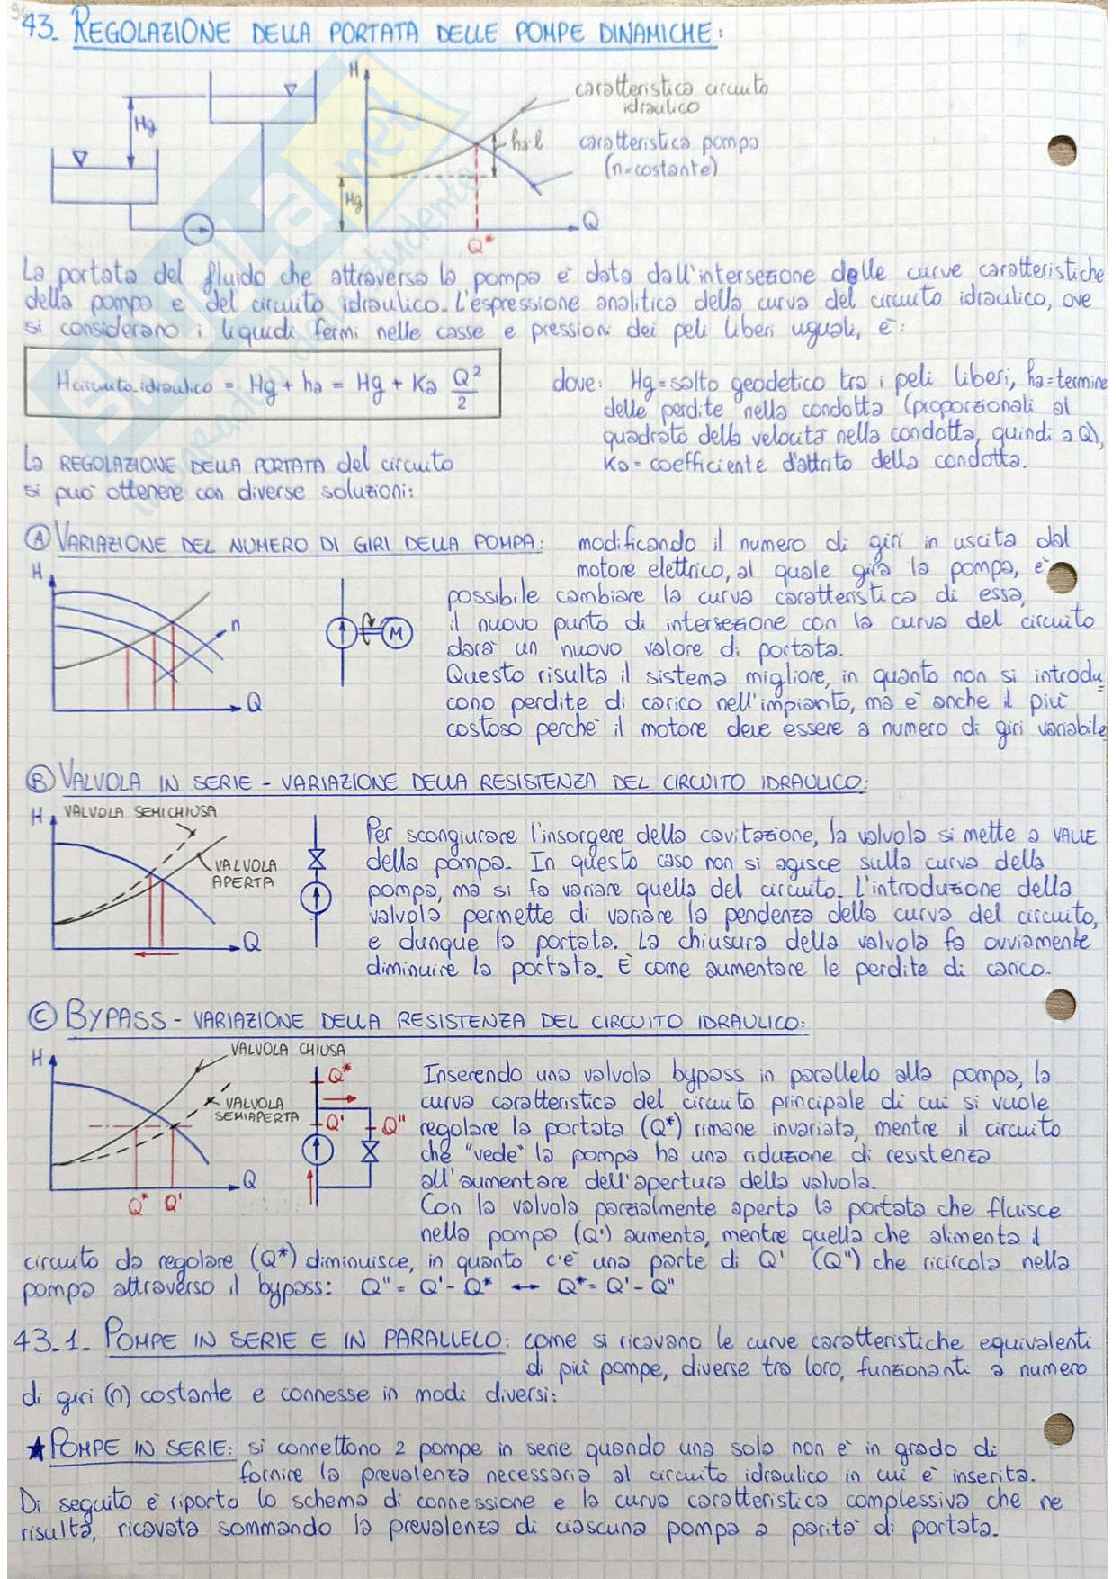 43. REGOLAZIONE DELLA PORTATA DELLE POMPE DINAMICHE:
Hg
H
caratteristica circuito
idraulico
ha·l
caratteristica pompa
(n=costante)
Hg
Q
Q*
La portata del fluido che attraversa la pompa è data dall'intersezione delle curve caratteristiche
della pompa e del circuito idraulico. L'espressione analitica della curva del circuito idraulico, ove
si considerano i liquidi fermi nelle casse e pressioni dei peli liberi uguali, è:
Hcircuito idraulico = Hg + ha = Hg + Ka Q²/2
dove: Hg=salto geodetico tra i peli liberi, ha=termine
delle perdite nella condotta (proporzionali al
quadrato della velocità nella condotta, quindi a Q),
Ka= coefficiente d'attrito della condotta.
La REGOLAZIONE DELLA PORTATA del circuito
si può ottenere con diverse soluzioni:
Ⓐ VARIAZIONE DEL NUMERO DI GIRI DELLA POMPA: modificando il numero di giri in uscita dal
motore elettrico, al quale gira la pompa, è
possibile cambiare la curva caratteristica di essa,
il nuovo punto di intersezione con la curva del circuito
darà un nuovo valore di portata.
Questo risulta il sistema migliore, in quanto non si introdu=
cono perdite di carico nell'impianto, ma è anche il più
costoso perché il motore deve essere a numero di giri variabile
H
n
Q
M
Ⓑ VALVOLA IN SERIE - VARIAZIONE DELLA RESISTENZA DEL CIRCUITO IDRAULICO:
H
VALVOLA SEMICHIUSA
VALVOLA
APERTA
Q
Per scongiurare l'insorgere della cavitazione, la valvola si mette a VALLE
della pompa. In questo caso non si agisce sulla curva della
pompa, ma si fa variare quella del circuito. L'introduzione della
valvola permette di variare la pendenza della curva del circuito,
e dunque la portata. La chiusura della valvola fa ovviamente
diminuire la portata. È come aumentare le perdite di carico.
Ⓒ BYPASS - VARIAZIONE DELLA RESISTENZA DEL CIRCUITO IDRAULICO:
H
VALVOLA CHIUSA
VALVOLA
SEMIAPERTA
Q
Q* Q'
Q*
Q'
Q''
Inserendo una valvola bypass in parallelo alla pompa, la
curva caratteristica del circuito principale di cui si vuole
regolare la portata (Q*) rimane invariata, mentre il circuito
che "vede" la pompa ha una riduzione di resistenza
all'aumentare dell'apertura della valvola.
Con la valvola parzialmente aperta la portata che fluisce
nella pompa (Q') aumenta, mentre quella che alimenta il
circuito da regolare (Q*) diminuisce, in quanto c'è una parte di Q' (Q'') che ricircola nella
pompa attraverso il bypass: Q'' = Q' - Q* ↔ Q* = Q' - Q''
43.1. POMPE IN SERIE E IN PARALLELO: come si ricavano le curve caratteristiche equivalenti
di più pompe, diverse tra loro, funzionanti a numero
di giri (n) costante e connesse in modi diversi:
★ POMPE IN SERIE: si connettono 2 pompe in serie quando una sola non è in grado di
fornire la prevalenza necessaria al circuito idraulico in cui è inserita.
Di seguito è riporto lo schema di connessione e la curva caratteristica complessiva che ne
risulta, ricavata sommando la prevalenza di ciascuna pompa a parità di portata.